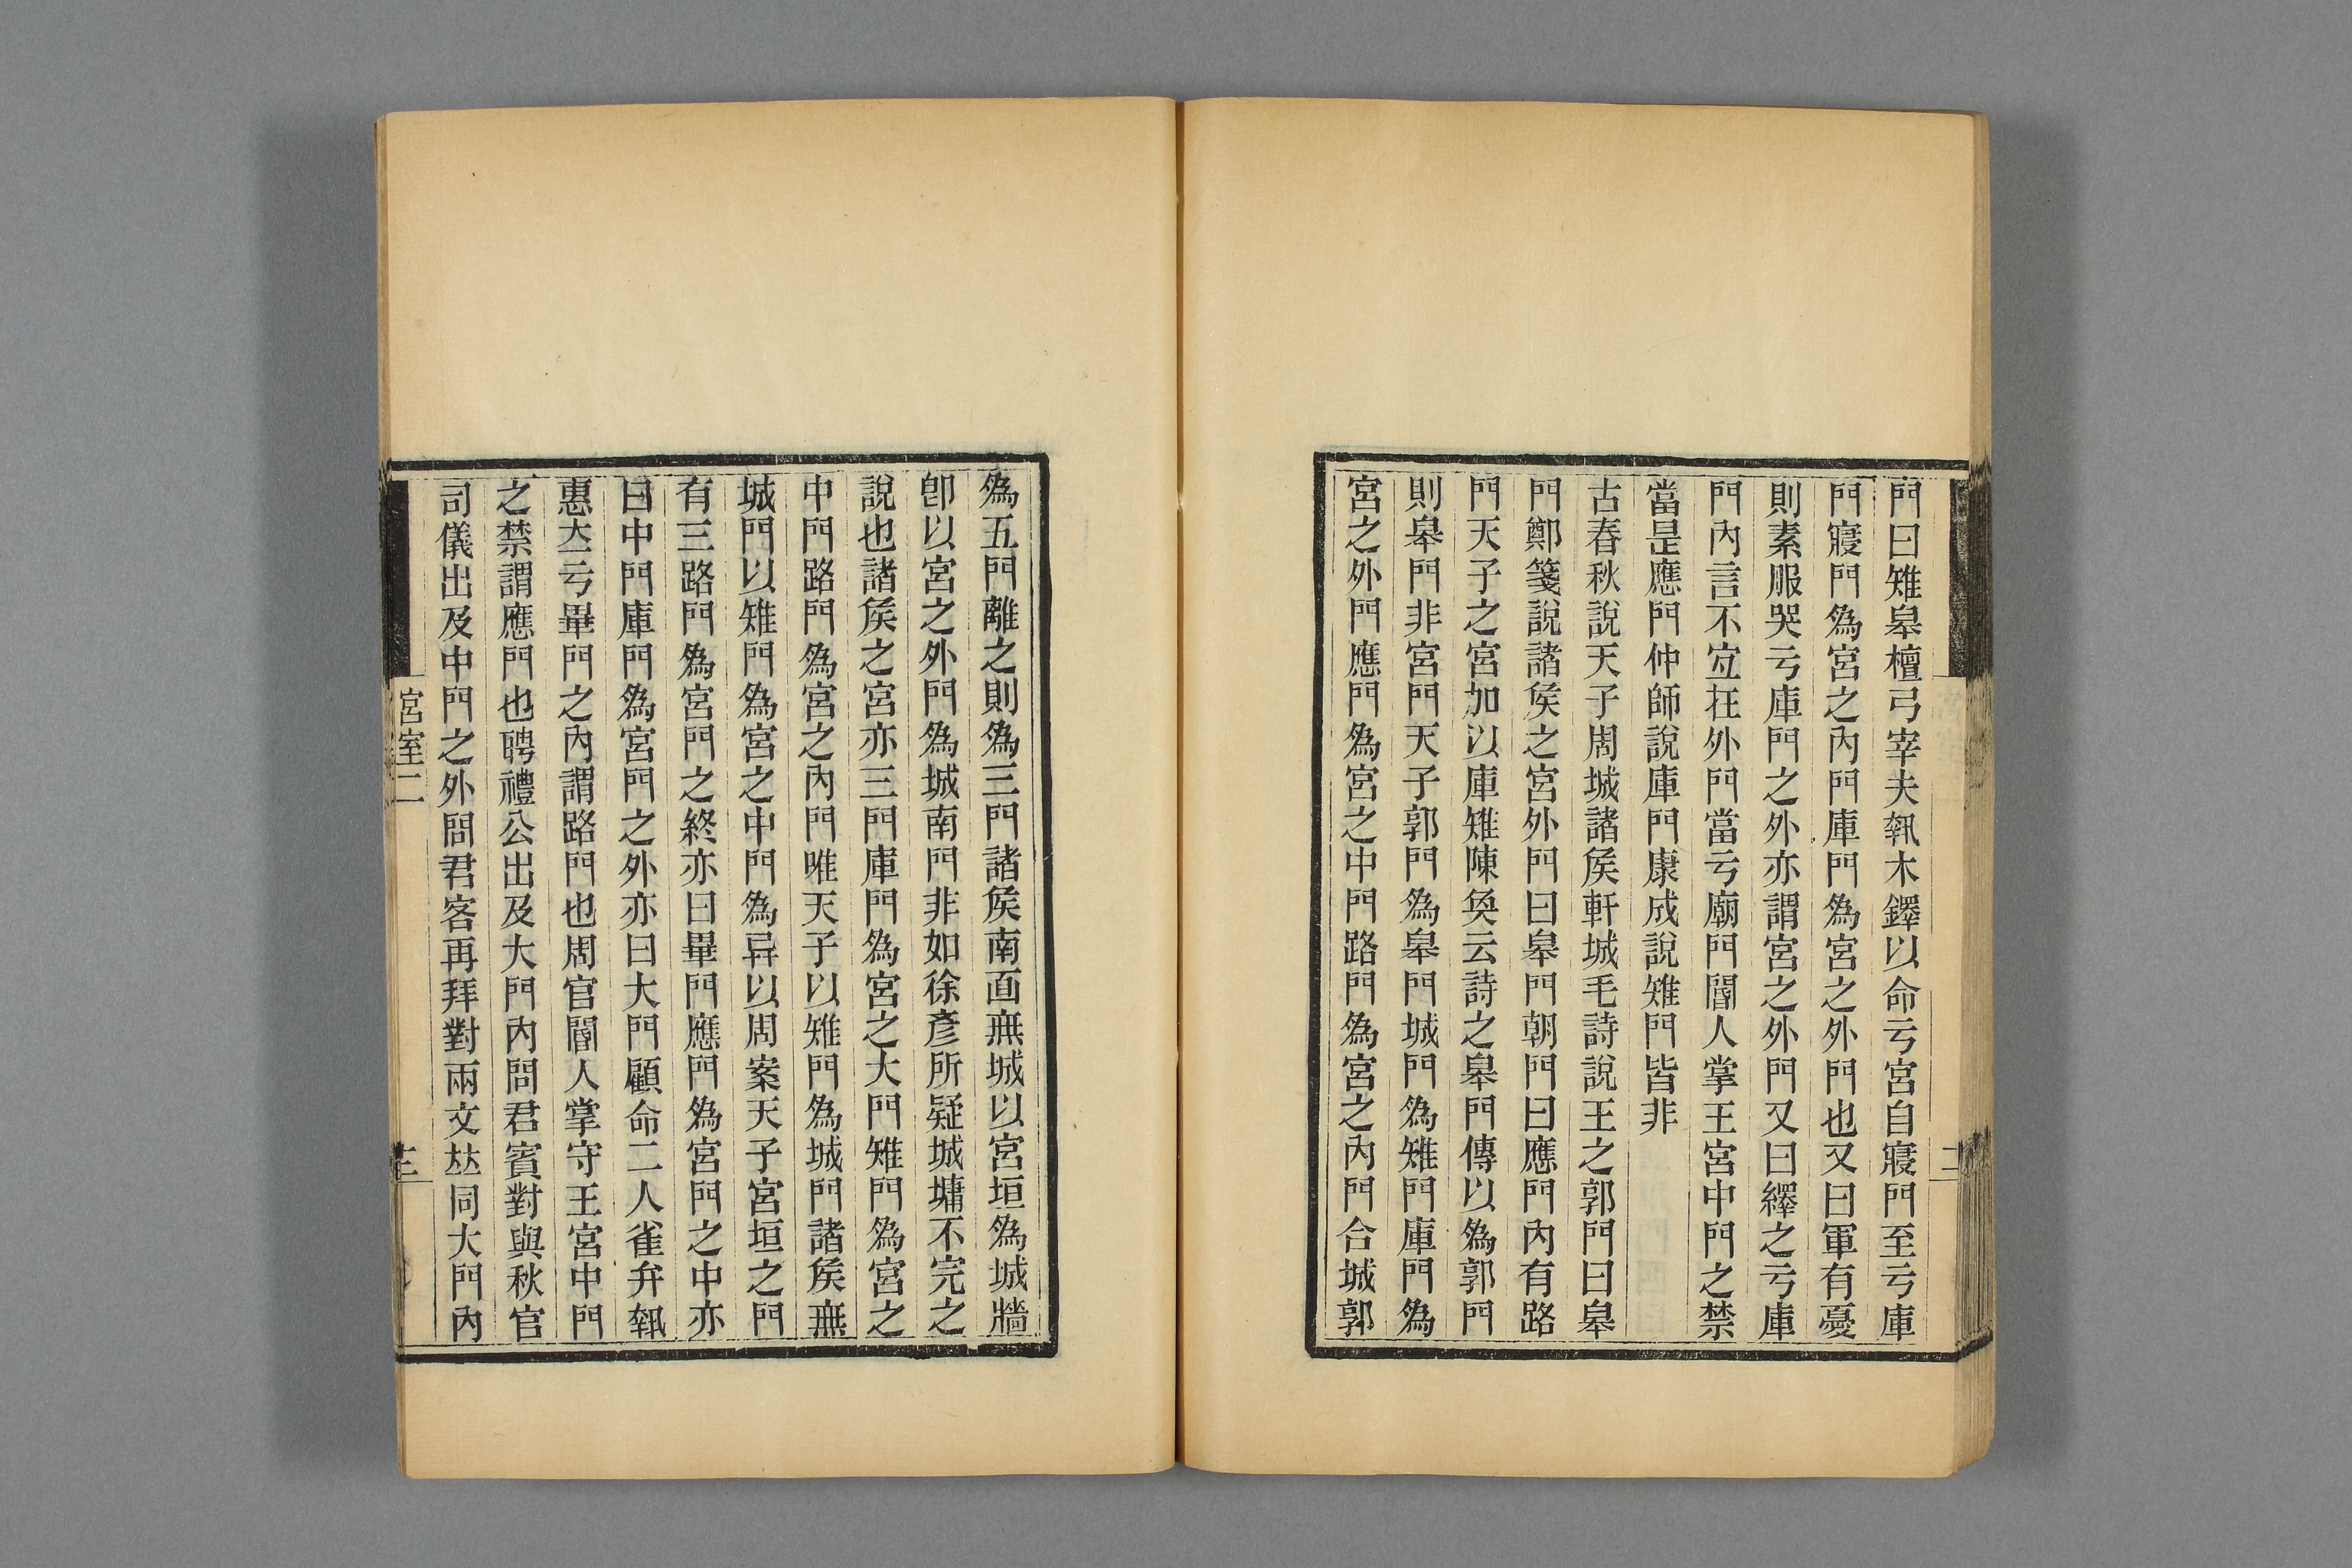 門曰雉皋檀弓宰夫執木鐸以命亏宮自寢門至亏庫
門寢門為宮之內門庫門為宮之外門也又曰軍有憂
則素服哭亏庫門之外亦謂宮之外門又曰繹之亏庫
門內言不宐在外門當亏廟門閽人掌王宮中門之禁
當是應門仲師說庫門康成說雉門皆非
古春秋說天子周城諸矦軒城毛詩說王之郭門曰皋
門鄭箋說諸矦之宮外門曰皋門朝門曰應門內有路
門天子之宮加以庫雉陳奐云詩之皋門傳以為郭門
則皋門非宮門天子郭門為皋門城門為雉門庫門為
宮之外門應門為宮之中門路門為宮之內門合城郭
二
為五門離之則為三門諸矦南面無城以宮垣為城牆
卽以宮之外門為城南門非如徐彥所疑城墉不完之
說也諸矦之宮亦三門庫門為宮之大門雉門為宮之
中門路門為宮之內門唯天子以雉門為城門諸矦無
城門以雉門為宮之中門為异以周案天子宮垣之門
有三路門為宮門之終亦曰畢門應門為宮門之中亦
曰中門庫門為宮門之外亦曰大門顧命二人雀弁執
惠立亏畢門之內謂路門也周官閽人掌守王宮中門
之禁謂應門也聘禮公出及大門內問君賓對與秋官
司儀出及中門之外問君客再拜對兩文竝同大門內
宮室二
三